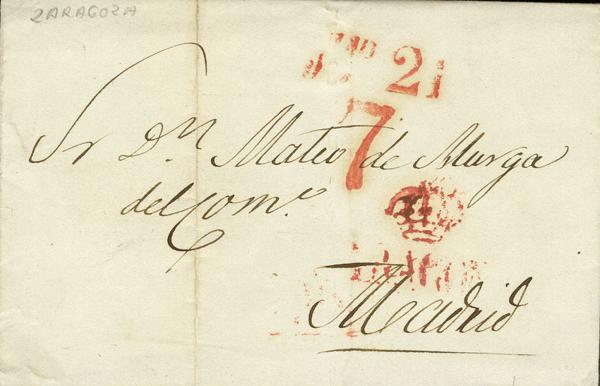 ZARAGOZA
21
7
Sr Dn Mateo de Murga
del Come.
Madrid